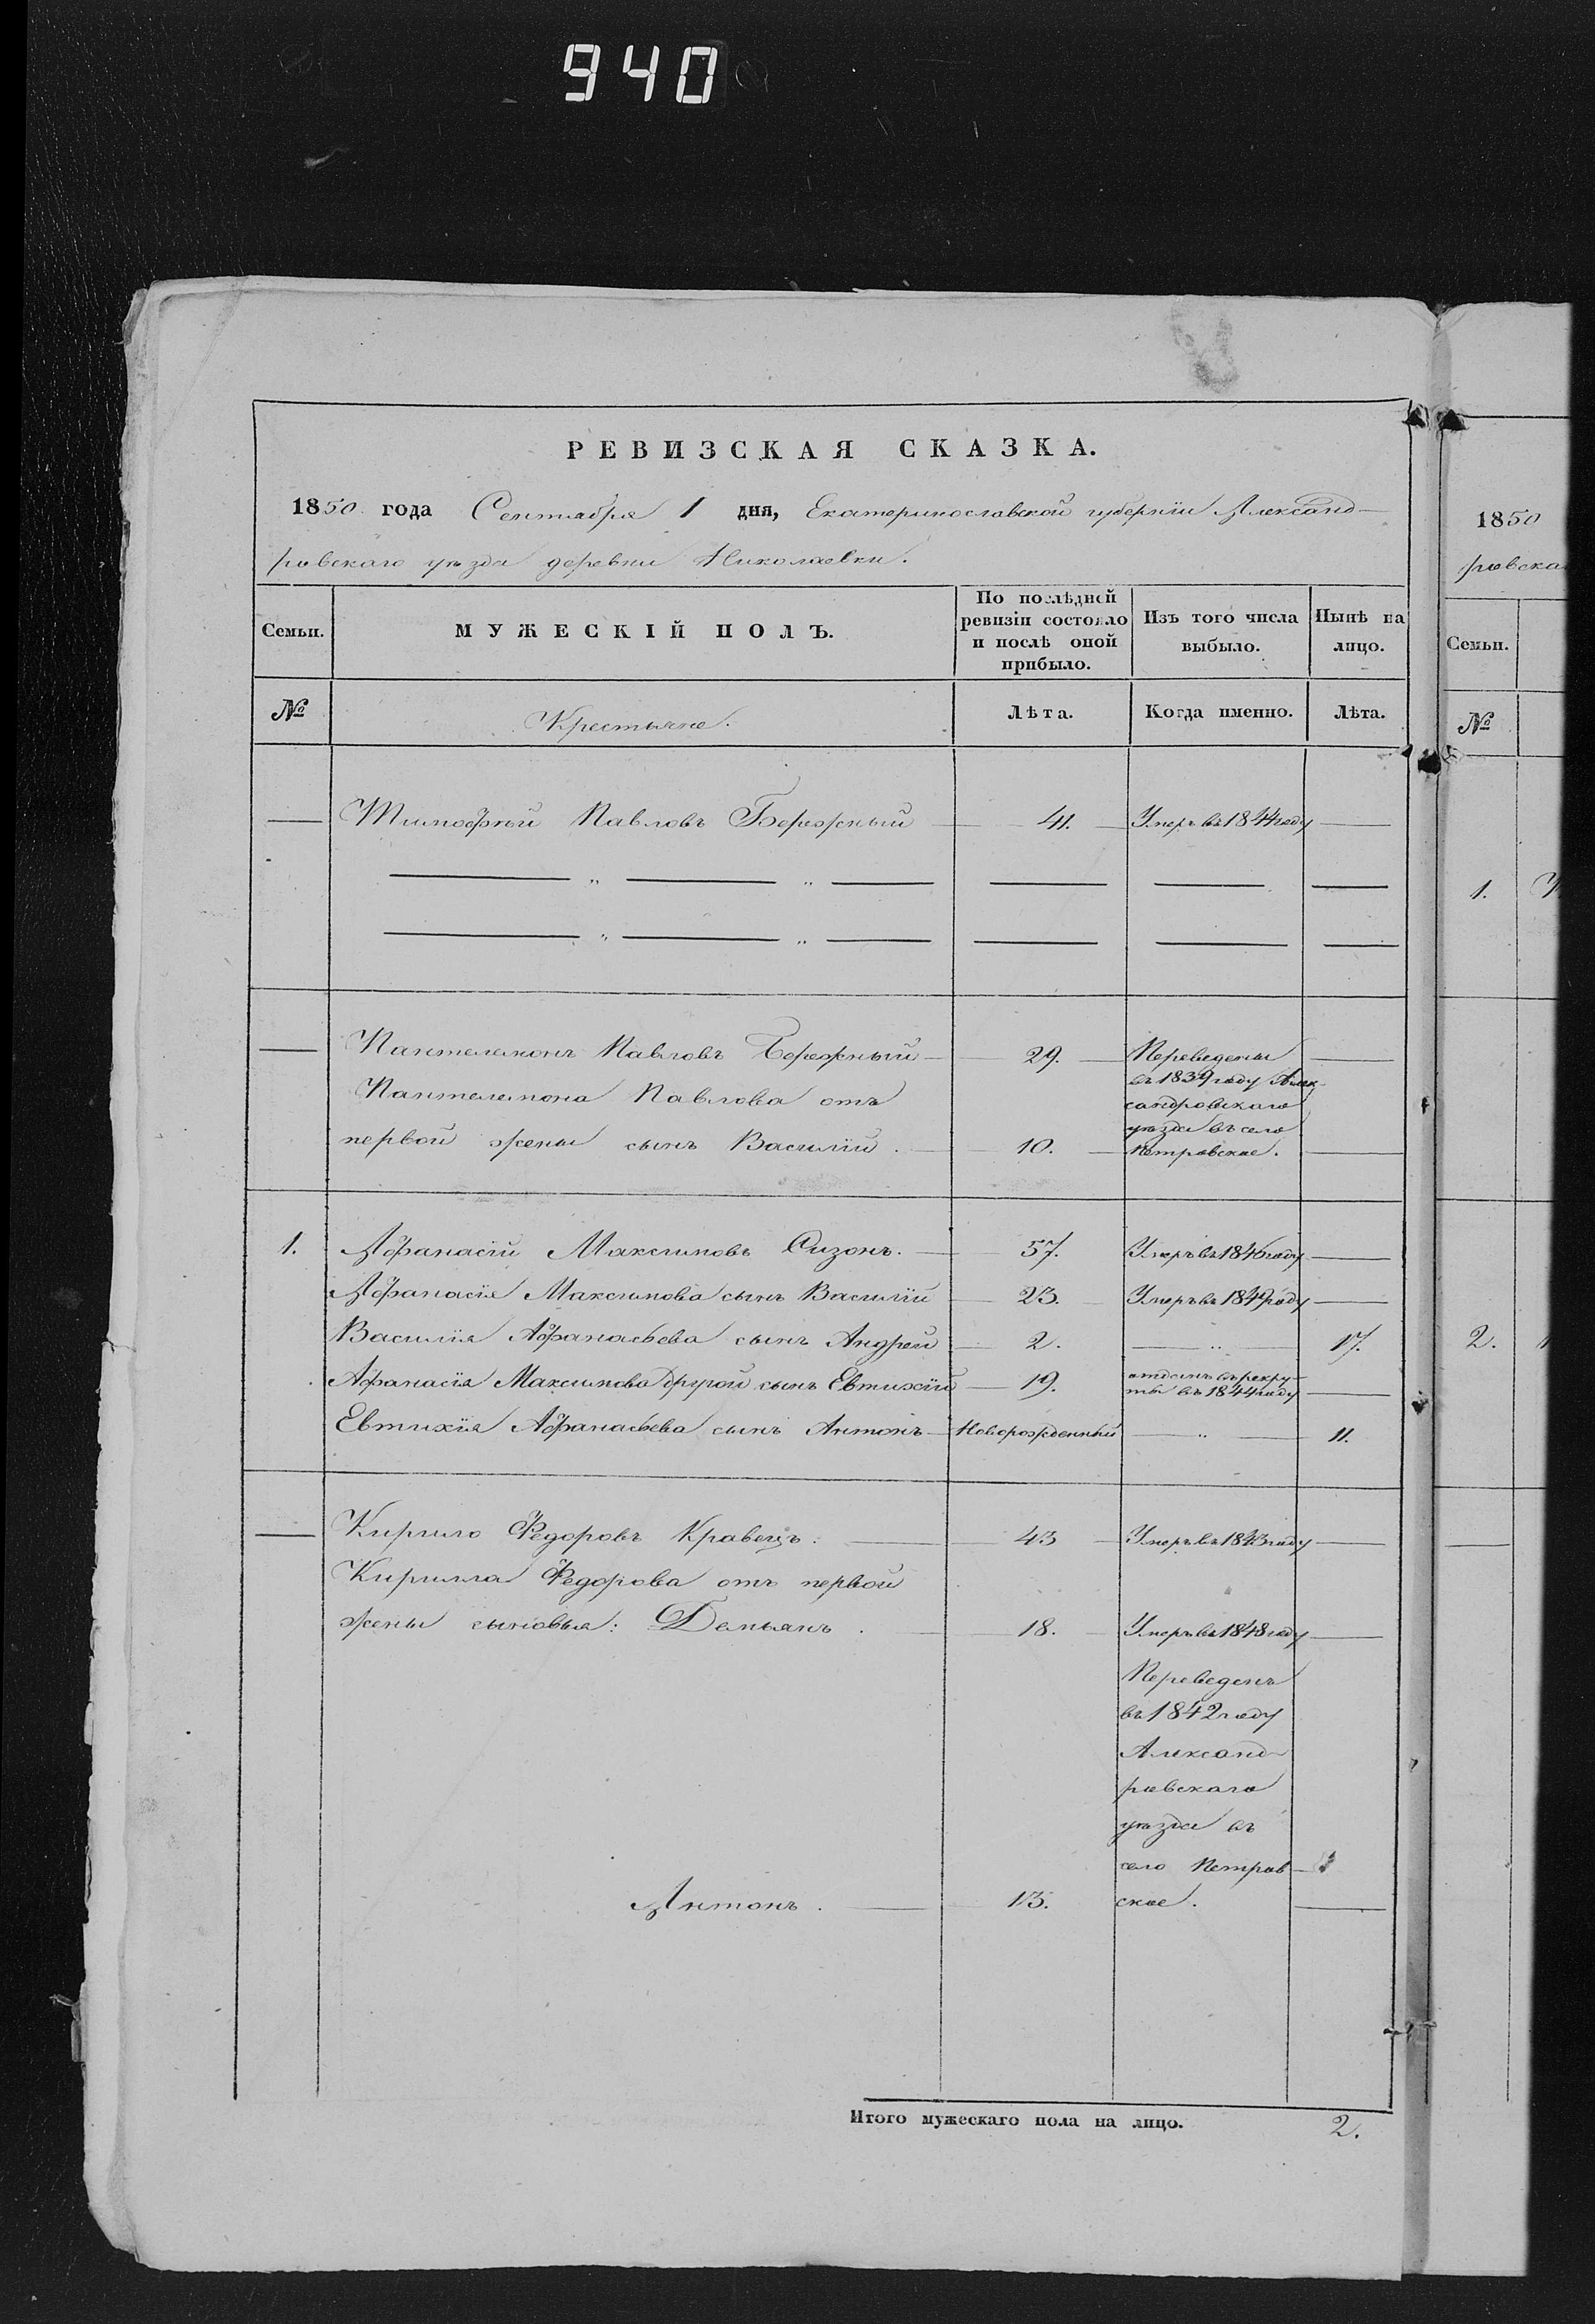 940
РЕВИЗСКАЯ СКАЗКА.
1850 года Сентября 1 дня, Екатеринославской губерніи Александ-
ровскаго уѣзда деревни Николаевки.
Семьи. МУЖЕСКІЙ ПОЛЪ. По послѣдней ревизіи состояло и послѣ оной прибыло. Изъ того числа выбыло. Нынѣ на лицо.
№ Крестьяне. Лѣта. Когда именно. Лѣта.
— Тимофѣй Павловъ Бережный — 41. — Умеръ въ 1844 году —
— „ — „ —
— „ — „ —
— Пантелемонъ Павловъ Бережный — 29. — Переведены —
въ 1839 году Алек-
Пантелемона Павлова отъ
сандровскаго
уѣзда въ село
первой жены сынъ Василій. — 10. — Петровское. —
1. Афанасій Максимовъ Сизонъ. — 57. Умеръ въ 1846 году —
Афанасія Максимова сынъ Василій — 23. — Умеръ въ 1849 году —
Василія Афанасьева сынъ Андрей — 2. — „ — 17.
Афанасія Максимова другой сынъ Евтихій — 19. отданъ въ рекру-
ты въ 1844 году —
Евтихія Афанасьева сынъ Антонъ — Новорожденный — „ — 11.
— Кирило Федоровъ Кравецъ. — 43 — Умеръ въ 1843 году —
Кирилла Федорова отъ первой
жены сыновья: Демьянъ. — 18. — Умеръ въ 1848 году —
Переведенъ
въ 1842 году
Александ-
ровскаго
уѣзда въ
село Петров-
Антонъ. — 13. ское. —
Итого мужескаго пола на лицо. 2.
1850
ровска
Семьи.
№
1.
2.